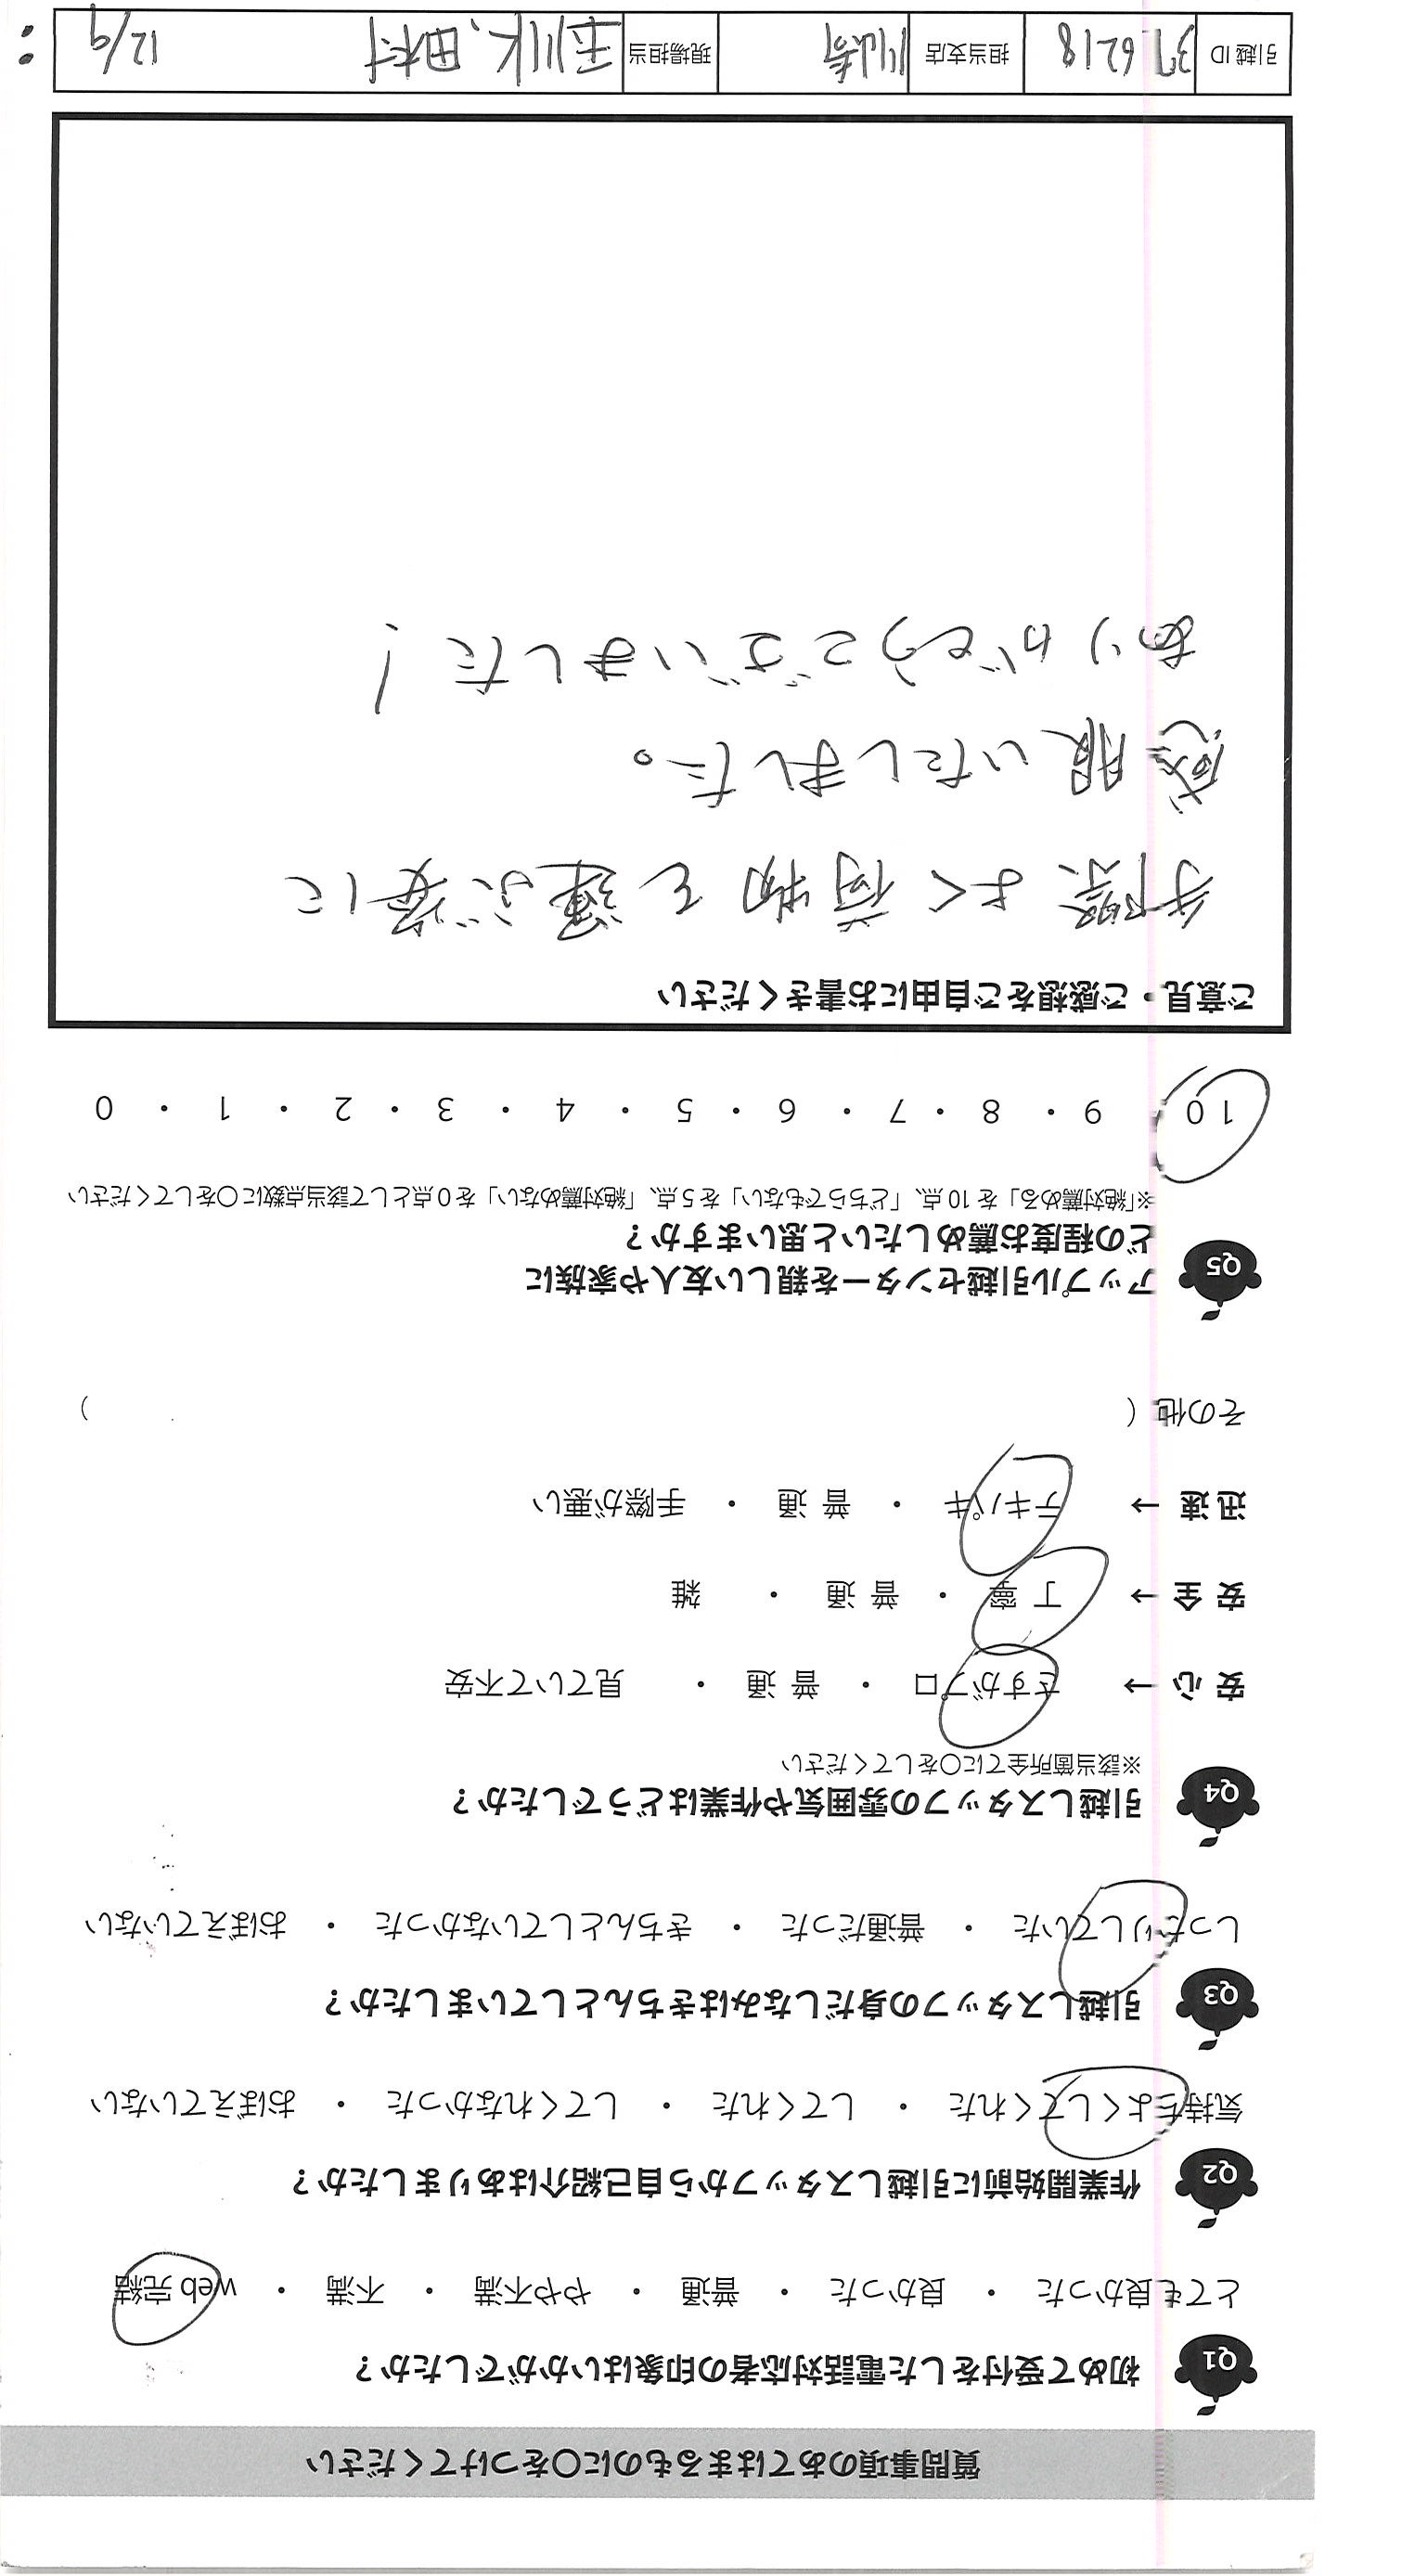 質問事項のあてはまるものに〇をつけてください
Q1 初めて受付をした電話対応者の印象はいかがでしたか？
とても良かった ・ 良かった ・ 普通 ・ やや不満 ・ 不満 ・ web 完結
Q2 作業開始前に引越しスタッフから自己紹介はありましたか？
気持ちよくしてくれた ・ してくれた ・ してくれなかった ・ おぼえていない
Q3 引越しスタッフの身だしなみはきちんとしていましたか？
しっかりしていた ・ 普通だった ・ きちんとしていなかった ・ おぼえていない
Q4 引越しスタッフの雰囲気や作業はどうでしたか？
※該当箇所全てに〇をしてください
安 心 → さすがプロ ・ 普 通 ・ 見ていて不安
安 全 → 丁 寧 ・ 普 通 ・ 雑
迅 速 → テキパキ ・ 普 通 ・ 手際が悪い
その他（ ）
Q5 アップル引越センターを親しい友人や家族に
どの程度お薦めしたいと思いますか？
※「絶対薦める」を 10 点、「どちらでもない」を 5 点、「絶対薦めない」を 0 点として該当点数に〇をしてください
10 ・ 9 ・ 8 ・ 7 ・ 6 ・ 5 ・ 4 ・ 3 ・ 2 ・ 1 ・ 0
ご意見・ご感想をご自由にお書きください
手際よく荷物を運ぶ姿に
感服いたしました。
ありがとうございました！
引越 ID 376218 担当支店 川崎 現場担当 玉川K、田村 12/9